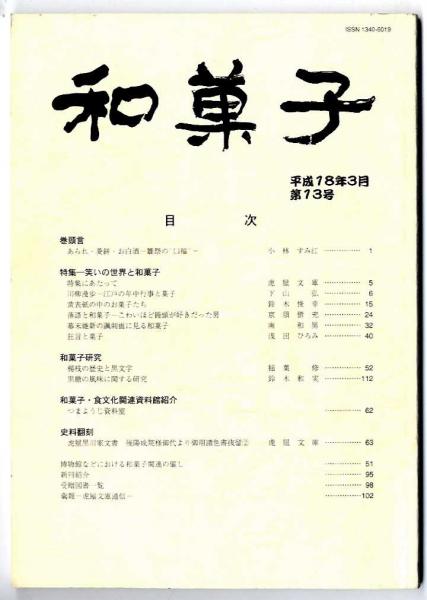 ISSN 1340-6019
和菓子
平成18年3月
第13号
目 次
巻頭言
あられ・菱餅・お白酒―雛祭の"口福"― 小林すみ江 1
特集―笑いの世界と和菓子
特集にあたって 虎屋文庫 5
川柳漫歩―江戸の年中行事と菓子 下山弘 6
黄表紙の中のお菓子たち 鈴木俊幸 15
落語と和菓子―こわいほど饅頭が好きだった男 京須偕充 24
幕末維新の諷刺画に見る和菓子 南和男 32
狂言と菓子 浅田ひろみ 40
和菓子研究
楊枝の歴史と黒文字 稲葉修 52
黒糖の風味に関する研究 鈴木和実 112
和菓子・食文化関連資料館紹介
つまようじ資料室 62
史料翻刻
虎屋黒川家文書 後陽成院様御代より御用諸色書抜留② 虎屋文庫 63
博物館などにおける和菓子関連の催し 51
新刊紹介 95
受贈図書一覧 98
彙報―虎屋文庫通信― 102